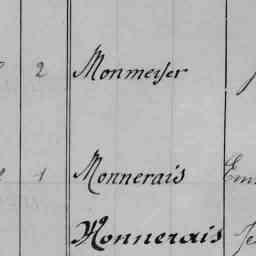 2 Monmeyer
1 Monnerais Em
Monnerais Je